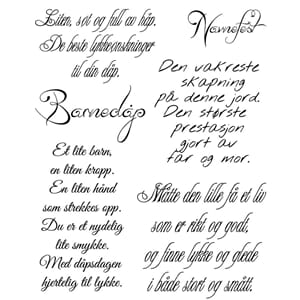 Liten, søt og full av håp.
De beste lykkeønskninger
til din dåp.
Navnefest
Den vakreste
skapning
på denne jord.
Den største
prestasjon
gjort av
far og mor.
Barnedåp
Et lite barn,
en liten kropp.
En liten hånd
som strekkes opp.
Du er et nydelig
lite smykke.
Med dåpsdagen
hjertelig til lykke.
Måtte den lille få et liv
som er rikt og godt,
og finne lykke og glede
i både stort og smått.